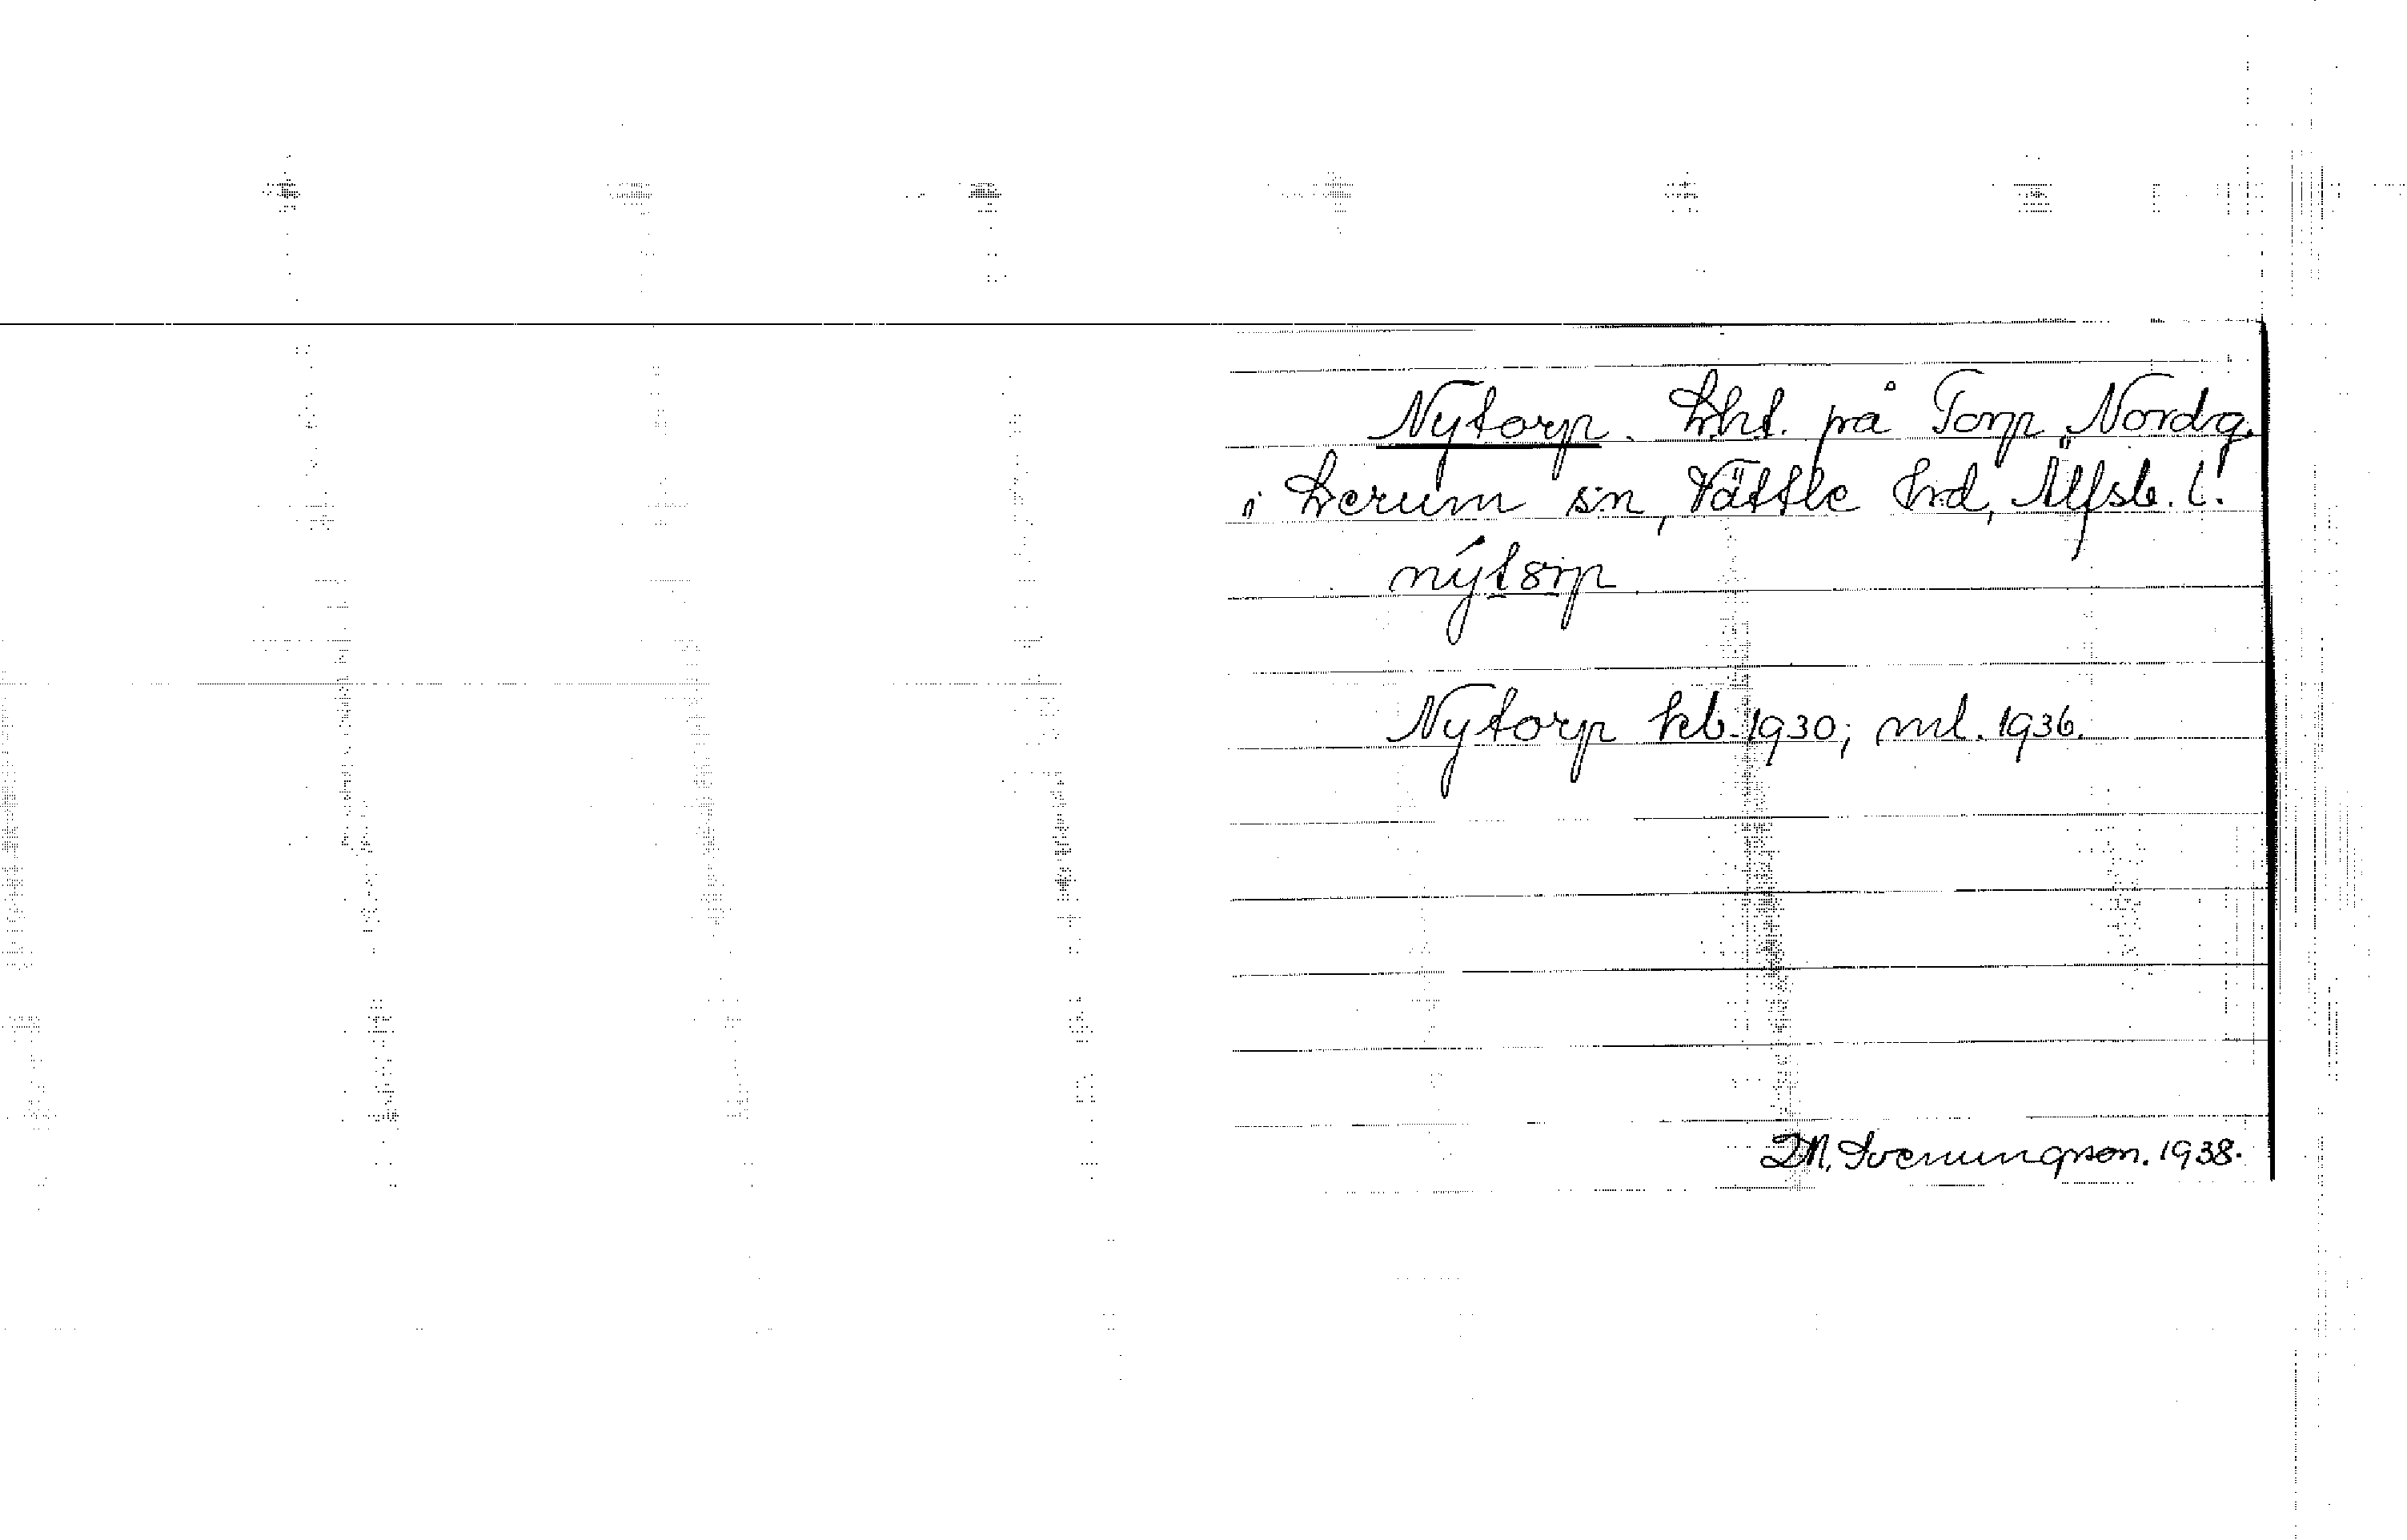 Nytorp. Lht. på Torp Nordg.
i Lerum sn, Vättle hd, Älfsb. l.
nýtorp
Nytorp kb. 1930; ml. 1936.
Svenungson. 1938.